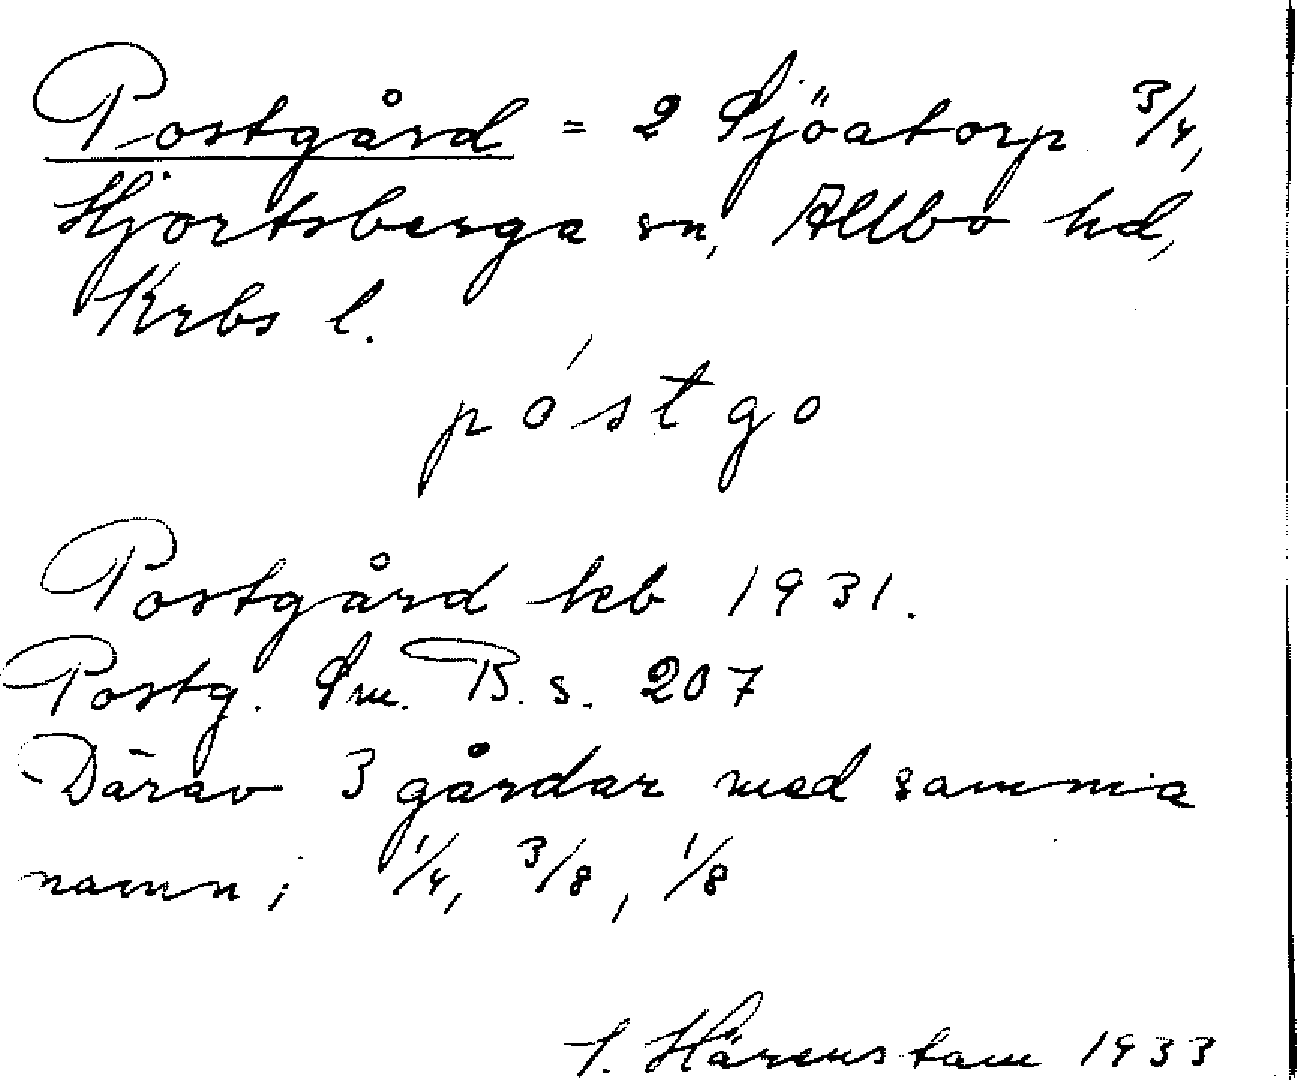 Postgård = 2 Sjöatorp 3/4,
Hjortsberga sn, Allbo hd,
Krbs l.
póstgo
Postgård hcb 1931.
Postg. Sm. B. s. 207
Därav 3 gårdar med samma
namn; 1/4, 3/8, 1/8
S. Härenstam 1933